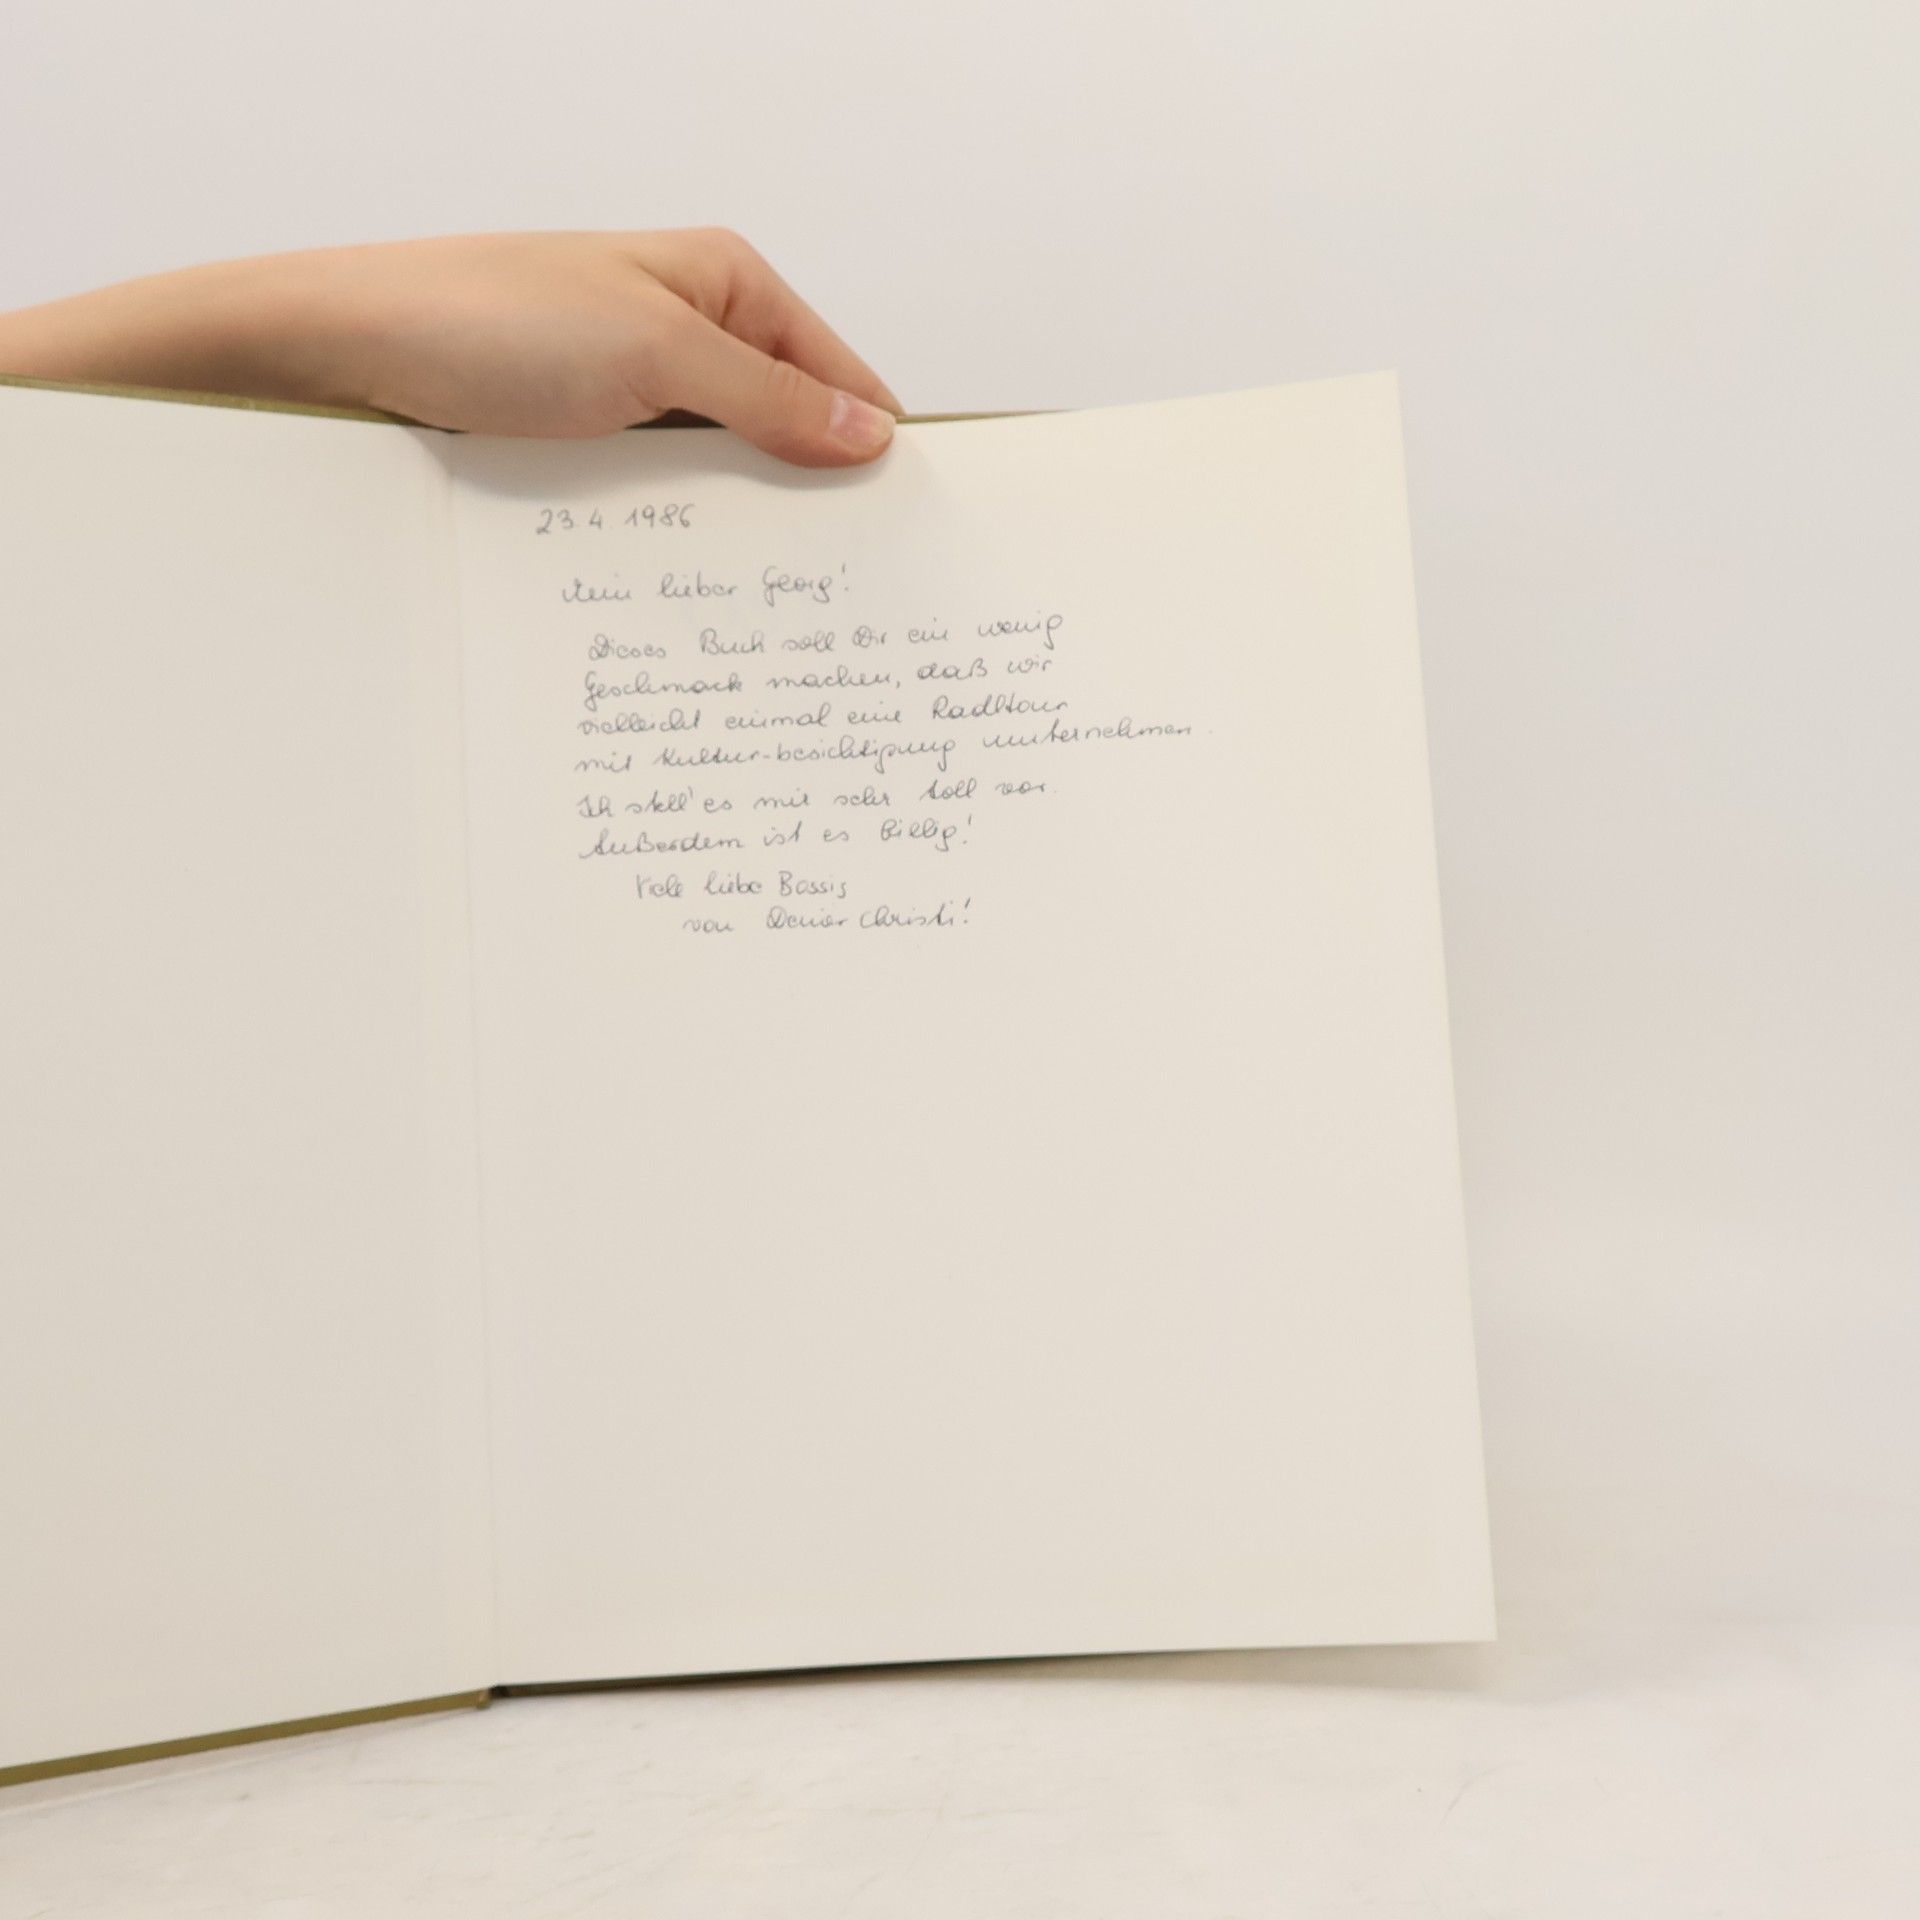 23.4.1986
Mein lieber Georg!
Dieses Buch soll Dir ein wenig
Geschmack machen, daß wir
vielleicht einmal eine Radltour
mit Kultur-besichtigung unternehmen.
Ich stell' es mir sehr toll vor.
Außerdem ist es billig!
Viele liebe Bussis
von Deiner Christi!